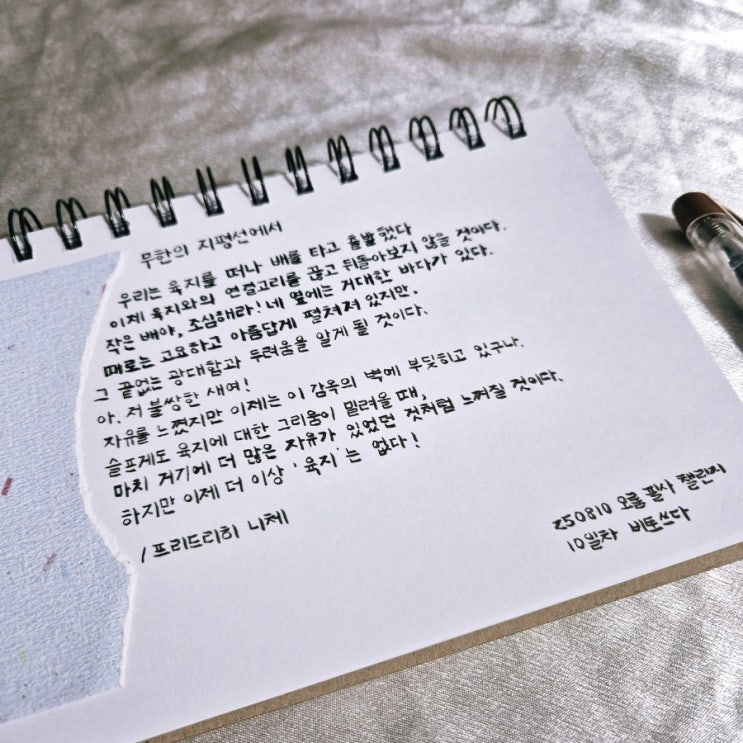 무한의 지평선에서
우리는 육지를 떠나 배를 타고 출발했다
이제 육지와의 연결고리를 끊고 뒤돌아보지 않을 것이다.
작은 배야, 조심해라! 네 옆에는 거대한 바다가 있다.
때로는 고요하고 아름답게 펼쳐져 있지만,
그 끝없는 광대함과 두려움을 알게 될 것이다.
아, 저 불쌍한 새여!
자유를 느꼈지만 이제는 이 감옥의 벽에 부딪히고 있구나.
슬프게도 육지에 대한 그리움이 밀려올 때,
마치 거기에 더 많은 자유가 있었던 것처럼 느껴질 것이다.
하지만 이제 더 이상 '육지'는 없다!
/ 프리드리히 니체
250810 오롬 필사 챌린지
10일차 쓰다